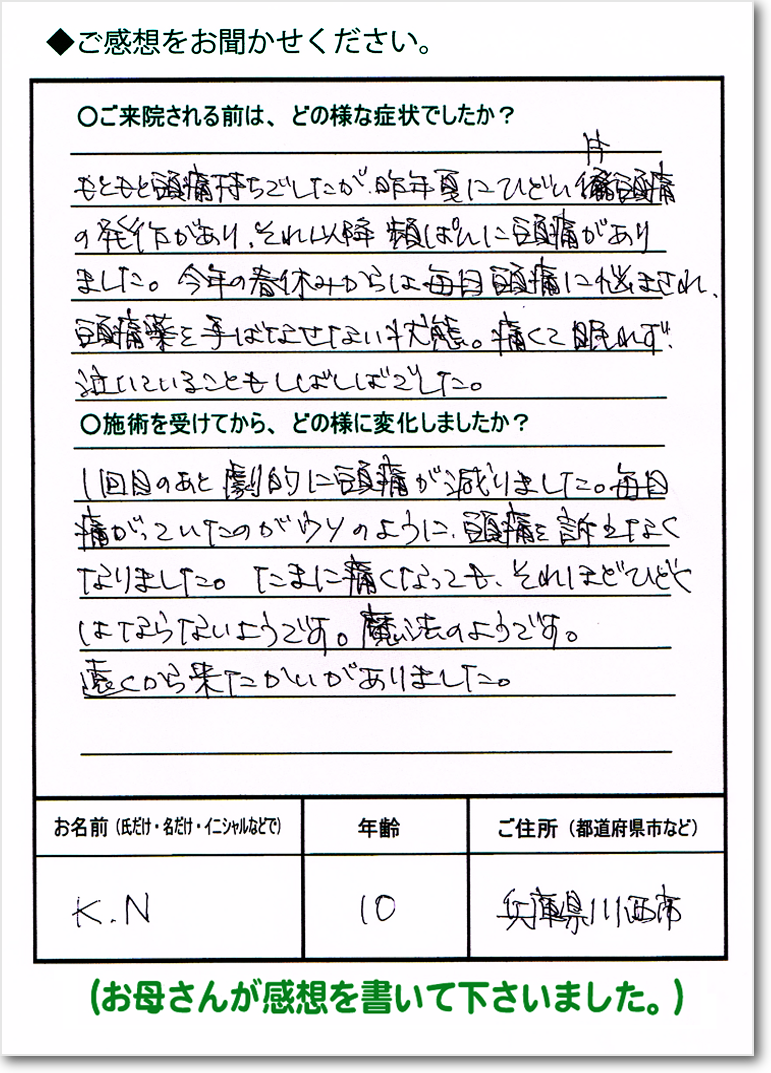 ◆ご感想をお聞かせください。
○ご来院される前は、どの様な症状でしたか？
もともと頭痛持ちでしたが、昨年夏にひどい片頭痛
の発作があり、それ以降頻ぱんに頭痛があり
ました。今年の春休みからは毎日頭痛に悩まされ、
頭痛薬を手ばなせない状態。痛くて眠れず、
泣いていることもしばしばでした。
○施術を受けてから、どの様に変化しましたか？
1回目のあと劇的に頭痛が減りました。毎日
痛がっていたのがウソのように、頭痛を訴えなく
なりました。たまに痛くなっても、それほどひどく
はならないようです。魔法のようです。
遠くから来たかいがありました。
お名前（氏だけ・名だけ・イニシャルなどで） 年齢 ご住所（都道府県市など）
K.N 10 兵庫県川西市
（お母さんが感想を書いて下さいました。）